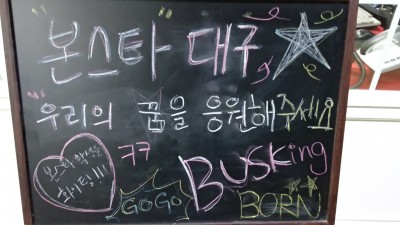 "본스타" 대구
"우리의 꿈을 응원해주세요"
본스타 학생들
화이팅!!!
GOGO
BUSKing
BORN